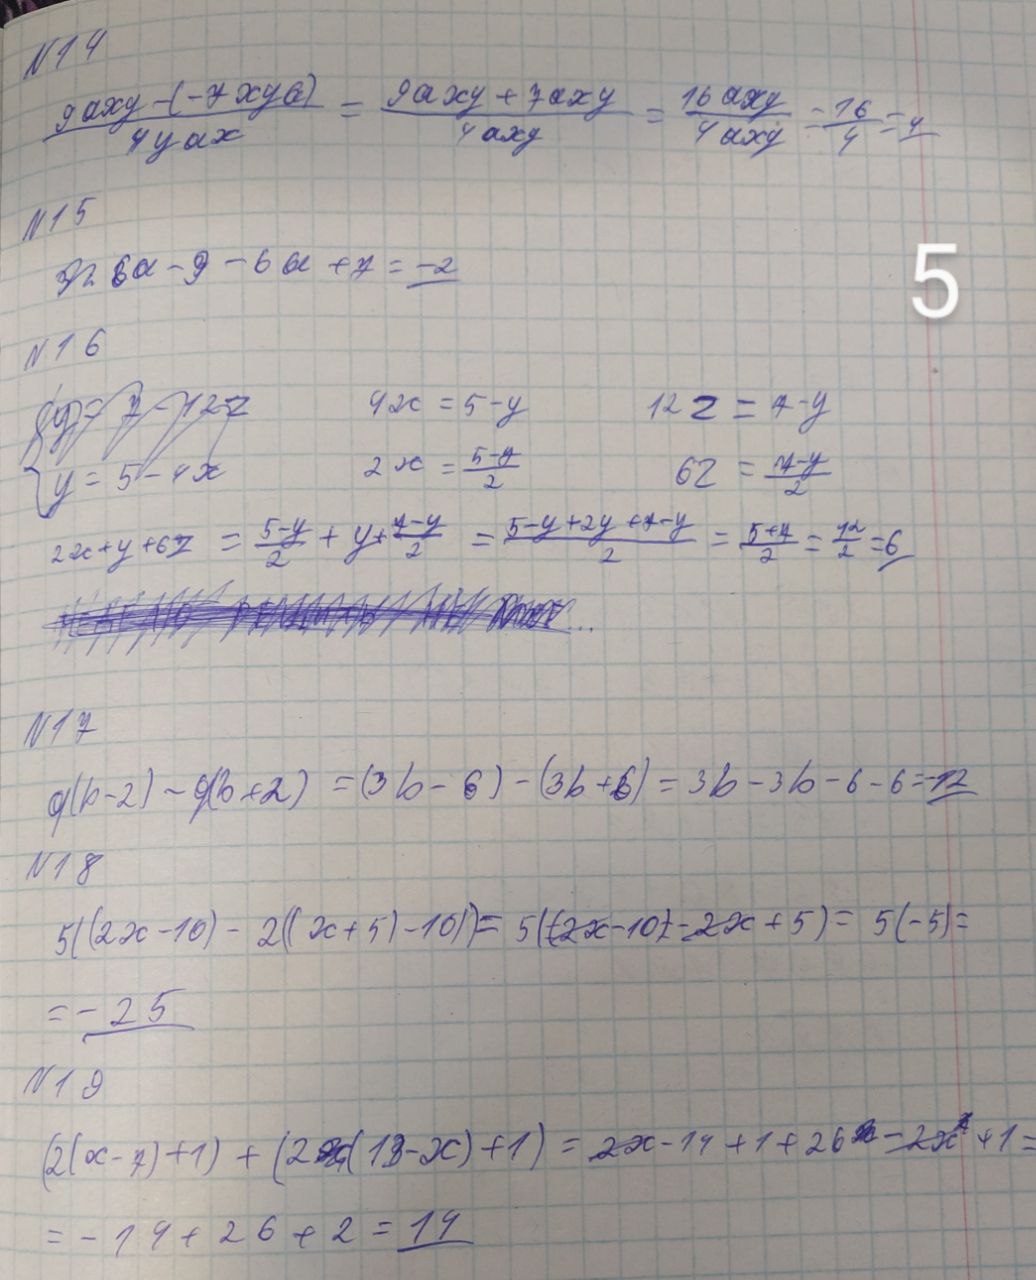 N14
(9axy-(-7xya))/(4yax) = (9axy+7axy)/(4axy) = (16axy)/(4axy) = 16/4 = 4
N15
6a-9-6a+7=-2
5
N16
y=7-12z 4x=5-y 12z=7-y
y=5-4x 2x=(5-y)/2 6z=(7-y)/2
2x+y+6z = (5-y)/2 + y + (7-y)/2 = (5-y+2y+7-y)/2 = (5+7)/2 = 12/2 = 6
N17
g(b-2)-g(b+2) = (3b-6)-(3b+6) = 3b-3b-6-6=-12
N18
5((2x-10)-2((x+5)-10))= 5((2x-10)-2x+5)= 5(-5)=
=-25
N19
(2(x-7)+1)+(2(13-x)+1) = 2x-14+1+26-2x+1=
=-14+26+2=14